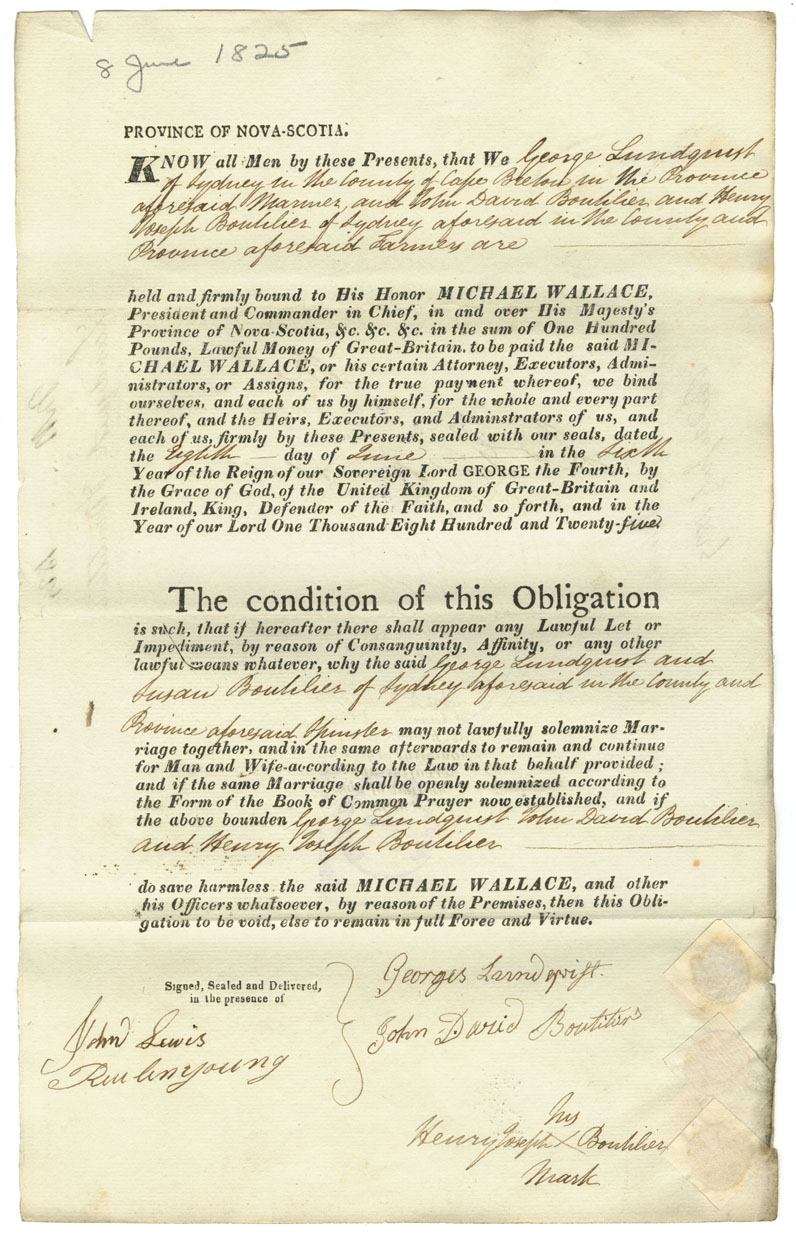 8 June 1825
PROVINCE OF NOVA-SCOTIA.
KNOW all Men by these Presents, that We George Lundquist
of Sydney in the County of Cape Breton in the Province
aforesaid Mariner, and John David Boutilier and Henry
Joseph Boutilier of Sydney aforesaid in the County and
Province aforesaid Farmers are
held and firmly bound to His Honor MICHAEL WALLACE,
President and Commander in Chief, in and over His Majesty's
Province of Nova-Scotia, &c. &c. &c. in the sum of One Hundred
Pounds, Lawful Money of Great-Britain. to be paid the said MI-
CHAEL WALLACE, or his certain Attorney, Executors, Admi-
nistrators, or Assigns, for the true payment whereof, we bind
ourselves, and each of us by himself, for the whole and every part
thereof, and the Heirs, Executors, and Adminstrators of us, and
each of us, firmly by these Presents, sealed with our seals, dated
the Eighth day of June in the Sixth
Year of the Reign of our Sovereign Lord GEORGE the Fourth, by
the Grace of God, of the United Kingdom of Great-Britain and
Ireland, King, Defender of the Faith, and so forth, and in the
Year of our Lord One Thousand Eight Hundred and Twenty-five
The condition of this Obligation
is such, that if hereafter there shall appear any Lawful Let or
Impediment, by reason of Consanguinity, Affinity, or any other
lawful means whatever, why the said George Lundquist and
Susan Boutilier of Sydney aforesaid in the County and
Province aforesaid Spinster may not lawfully solemnize Mar-
riage together, and in the same afterwards to remain and continue
for Man and Wife-according to the Law in that behalf provided;
and if the same Marriage shall be openly solemnized according to
the Form of the Book of Common Prayer now established, and if
the above bounden George Lundquist John David Boutilier
and Henry Joseph Boutilier
do save harmless the said MICHAEL WALLACE, and other
his Officers whatsoever, by reason of the Premises, then this Obli-
gation to be void, else to remain in full Force and Virtue.
Signed, Sealed and Delivered,
in the presence of
John Lewis
Reuben Young
Georges Lundqvist.
John David Boutilier
His
Henry Joseph X Boutilier
Mark